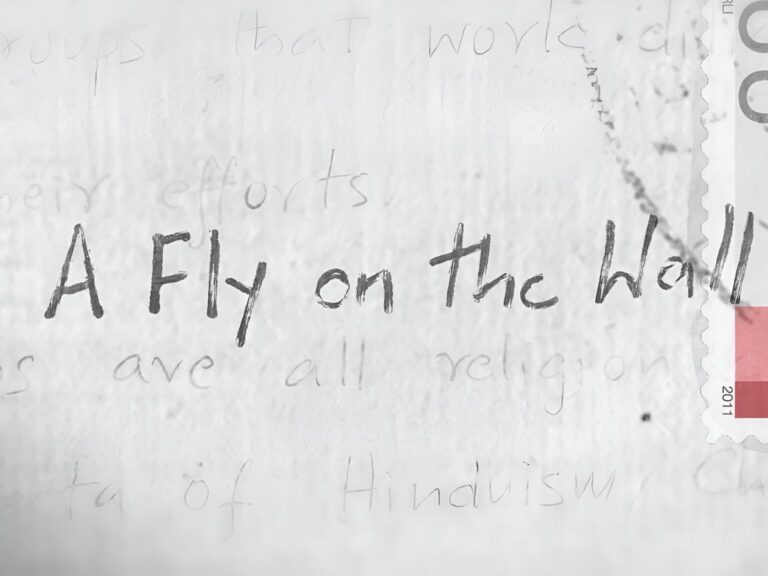 groups that work di
their efforts.
A Fly on the Wall
are all religion
of Hinduism Ch
2011